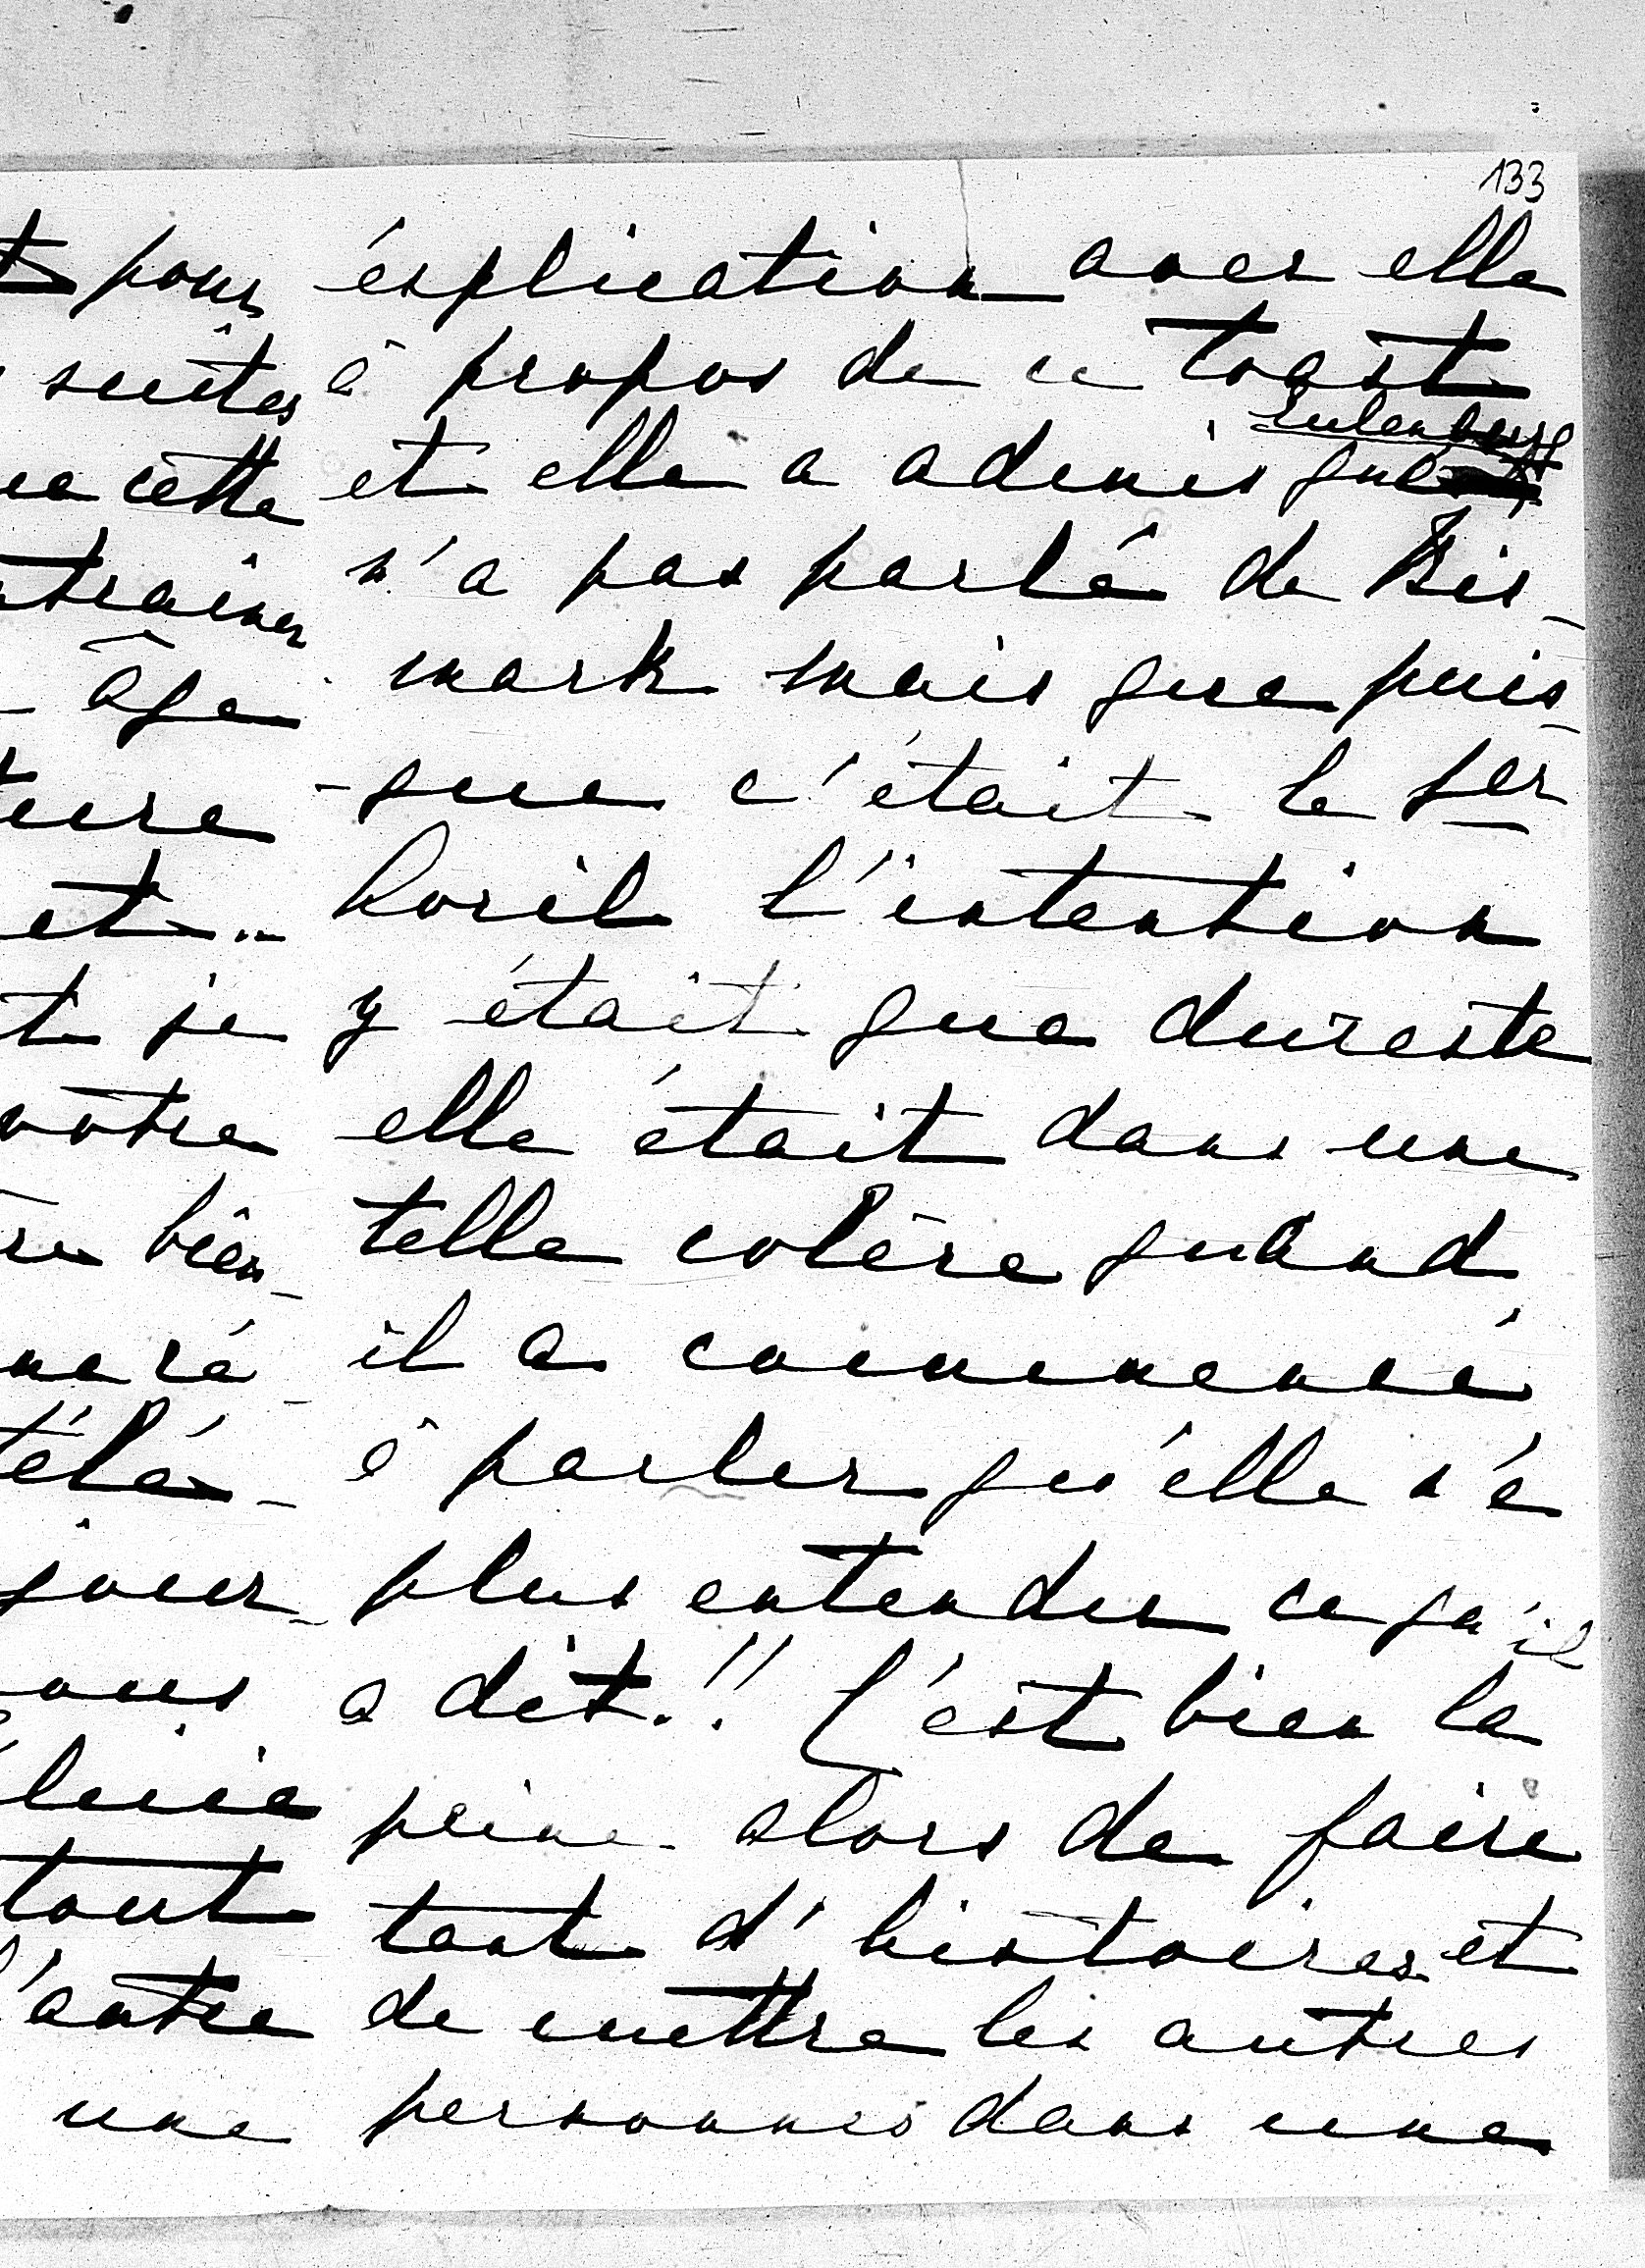 133
t pour
suites
ue cette
ntrainer
âge
ture
et..
t je
votre
bien-
ne ré-
télé-
jour-
ous
tout
l'autre
une
éxplication avec elle
à propos de ce toast
et elle a admis que Eulenburg
n'a pas parlé de Bis-
mark mais que puis-
-que c'était le 1er
Avril l'intention
y était que dureste
elle était dans une
telle colère quand
il a commencé
à parler qu'elle n'a
plus entendu ce qu'il
a dit.!! C'est bien la
peine alors de faire
tant d'histoires et
de mettre les autres
personnes dans une